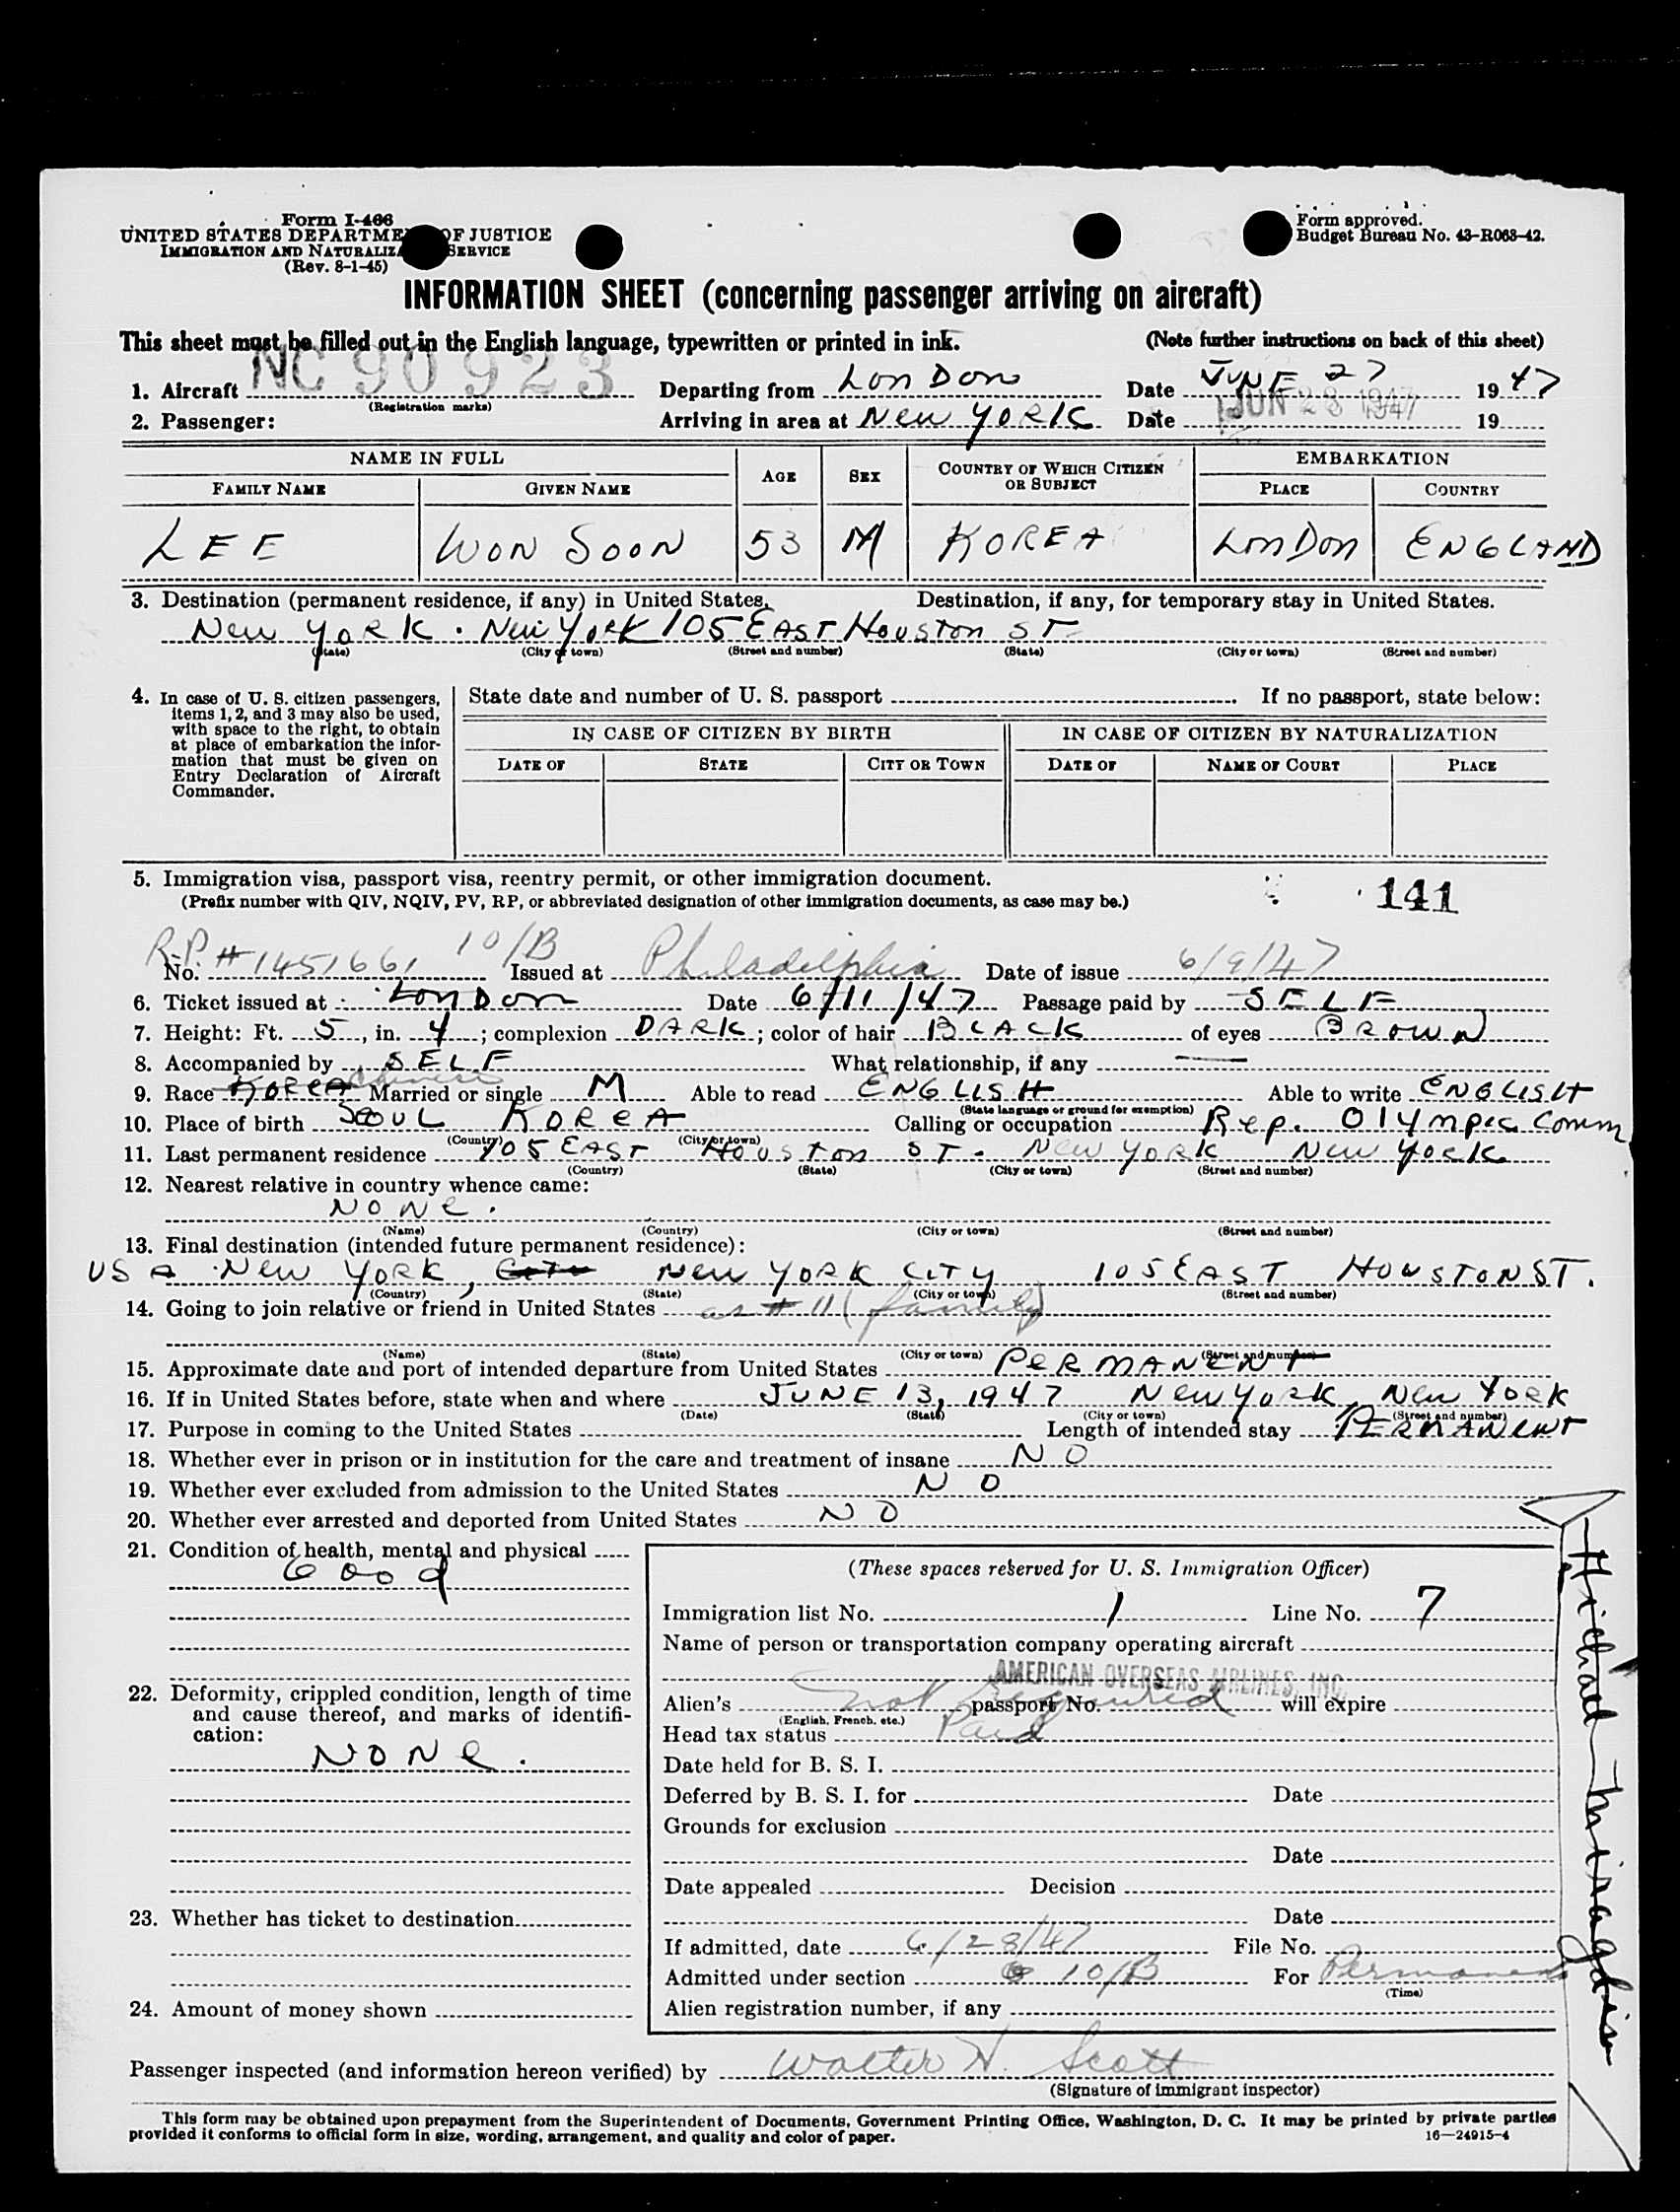 Form I-466
UNITED STATES DEPARTMENT OF JUSTICE
IMMIGRATION AND NATURALIZATION SERVICE
(Rev. 8-1-45)
Form approved.
Budget Bureau No. 43-R063-42.
INFORMATION SHEET (concerning passenger arriving on aircraft)
This sheet must be filled out in the English language, typewritten or printed in ink. (Note further instructions on back of this sheet)
1. Aircraft NC 90923 Departing from LONDON Date JUNE 27 1947
(Registration marks)
2. Passenger: Arriving in area at NEW YORK Date JUN 28 1947 19
NAME IN FULL AGE SEX COUNTRY OF WHICH CITIZEN OR SUBJECT EMBARKATION
FAMILY NAME GIVEN NAME PLACE COUNTRY
LEE WON SOON 53 M KOREA LONDON ENGLAND
3. Destination (permanent residence, if any) in United States. Destination, if any, for temporary stay in United States.
NEW YORK. NEW YORK 105 EAST HOUSTON ST
(State) (City or town) (Street and number) (State) (City or town) (Street and number)
4. In case of U. S. citizen passengers, items 1, 2, and 3 may also be used, with space to the right, to obtain at place of embarkation the information that must be given on Entry Declaration of Aircraft Commander.
State date and number of U. S. passport If no passport, state below:
IN CASE OF CITIZEN BY BIRTH IN CASE OF CITIZEN BY NATURALIZATION
DATE OF STATE CITY OR TOWN DATE OF NAME OF COURT PLACE
5. Immigration visa, passport visa, reentry permit, or other immigration document. 141
(Prefix number with QIV, NQIV, PV, RP, or abbreviated designation of other immigration documents, as case may be.)
R.P. 10/B
No. #1451661 Issued at Philadelphia Date of issue 6/9/47
6. Ticket issued at LONDON Date 6/11/47 Passage paid by SELF
7. Height: Ft. 5, in. 4; complexion DARK; color of hair BLACK of eyes BROWN
8. Accompanied by SELF What relationship, if any —
9. Race KOREA Chinese Married or single M Able to read ENGLISH Able to write ENGLISH
(State language or ground for exemption)
10. Place of birth SEOUL KOREA Calling or occupation Rep. OLYMPIC Comm
(Country) (City or town)
11. Last permanent residence 105 EAST HOUSTON ST. NEW YORK NEW YORK
(Country) (State) (City or town) (Street and number)
12. Nearest relative in country whence came:
NONE.
(Name) (Country) (City or town) (Street and number)
13. Final destination (intended future permanent residence):
USA NEW YORK, NEW YORK CITY 105 EAST HOUSTON ST.
(Country) (State) (City or town) (Street and number)
14. Going to join relative or friend in United States as #11 (family)
(Name) (State) (City or town) (Street and number)
15. Approximate date and port of intended departure from United States PERMANENT
16. If in United States before, state when and where JUNE 13, 1947 NEW YORK, NEW YORK
(Date) (State) (City or town) (Street and number)
17. Purpose in coming to the United States Length of intended stay PERMANENT
18. Whether ever in prison or in institution for the care and treatment of insane NO
19. Whether ever excluded from admission to the United States NO
20. Whether ever arrested and deported from United States NO
21. Condition of health, mental and physical
Good
22. Deformity, crippled condition, length of time and cause thereof, and marks of identification:
NONE.
23. Whether has ticket to destination
24. Amount of money shown
(These spaces reserved for U. S. Immigration Officer)
Immigration list No. 1 Line No. 7
Name of person or transportation company operating aircraft
AMERICAN OVERSEAS AIRLINES, INC.
Alien's not required passport No. will expire
(English, French, etc.)
Head tax status Paid
Date held for B. S. I.
Deferred by B. S. I. for Date
Grounds for exclusion
Date
Date appealed Decision
Date
If admitted, date 6/28/47 File No.
Admitted under section 10/B For Permanent
(Time)
Alien registration number, if any
Passenger inspected (and information hereon verified) by Walter H. Scott
(Signature of immigrant inspector)
This form may be obtained upon prepayment from the Superintendent of Documents, Government Printing Office, Washington, D. C. It may be printed by private parties
provided it conforms to official form in size, wording, arrangement, and quality and color of paper. 16—24915-4